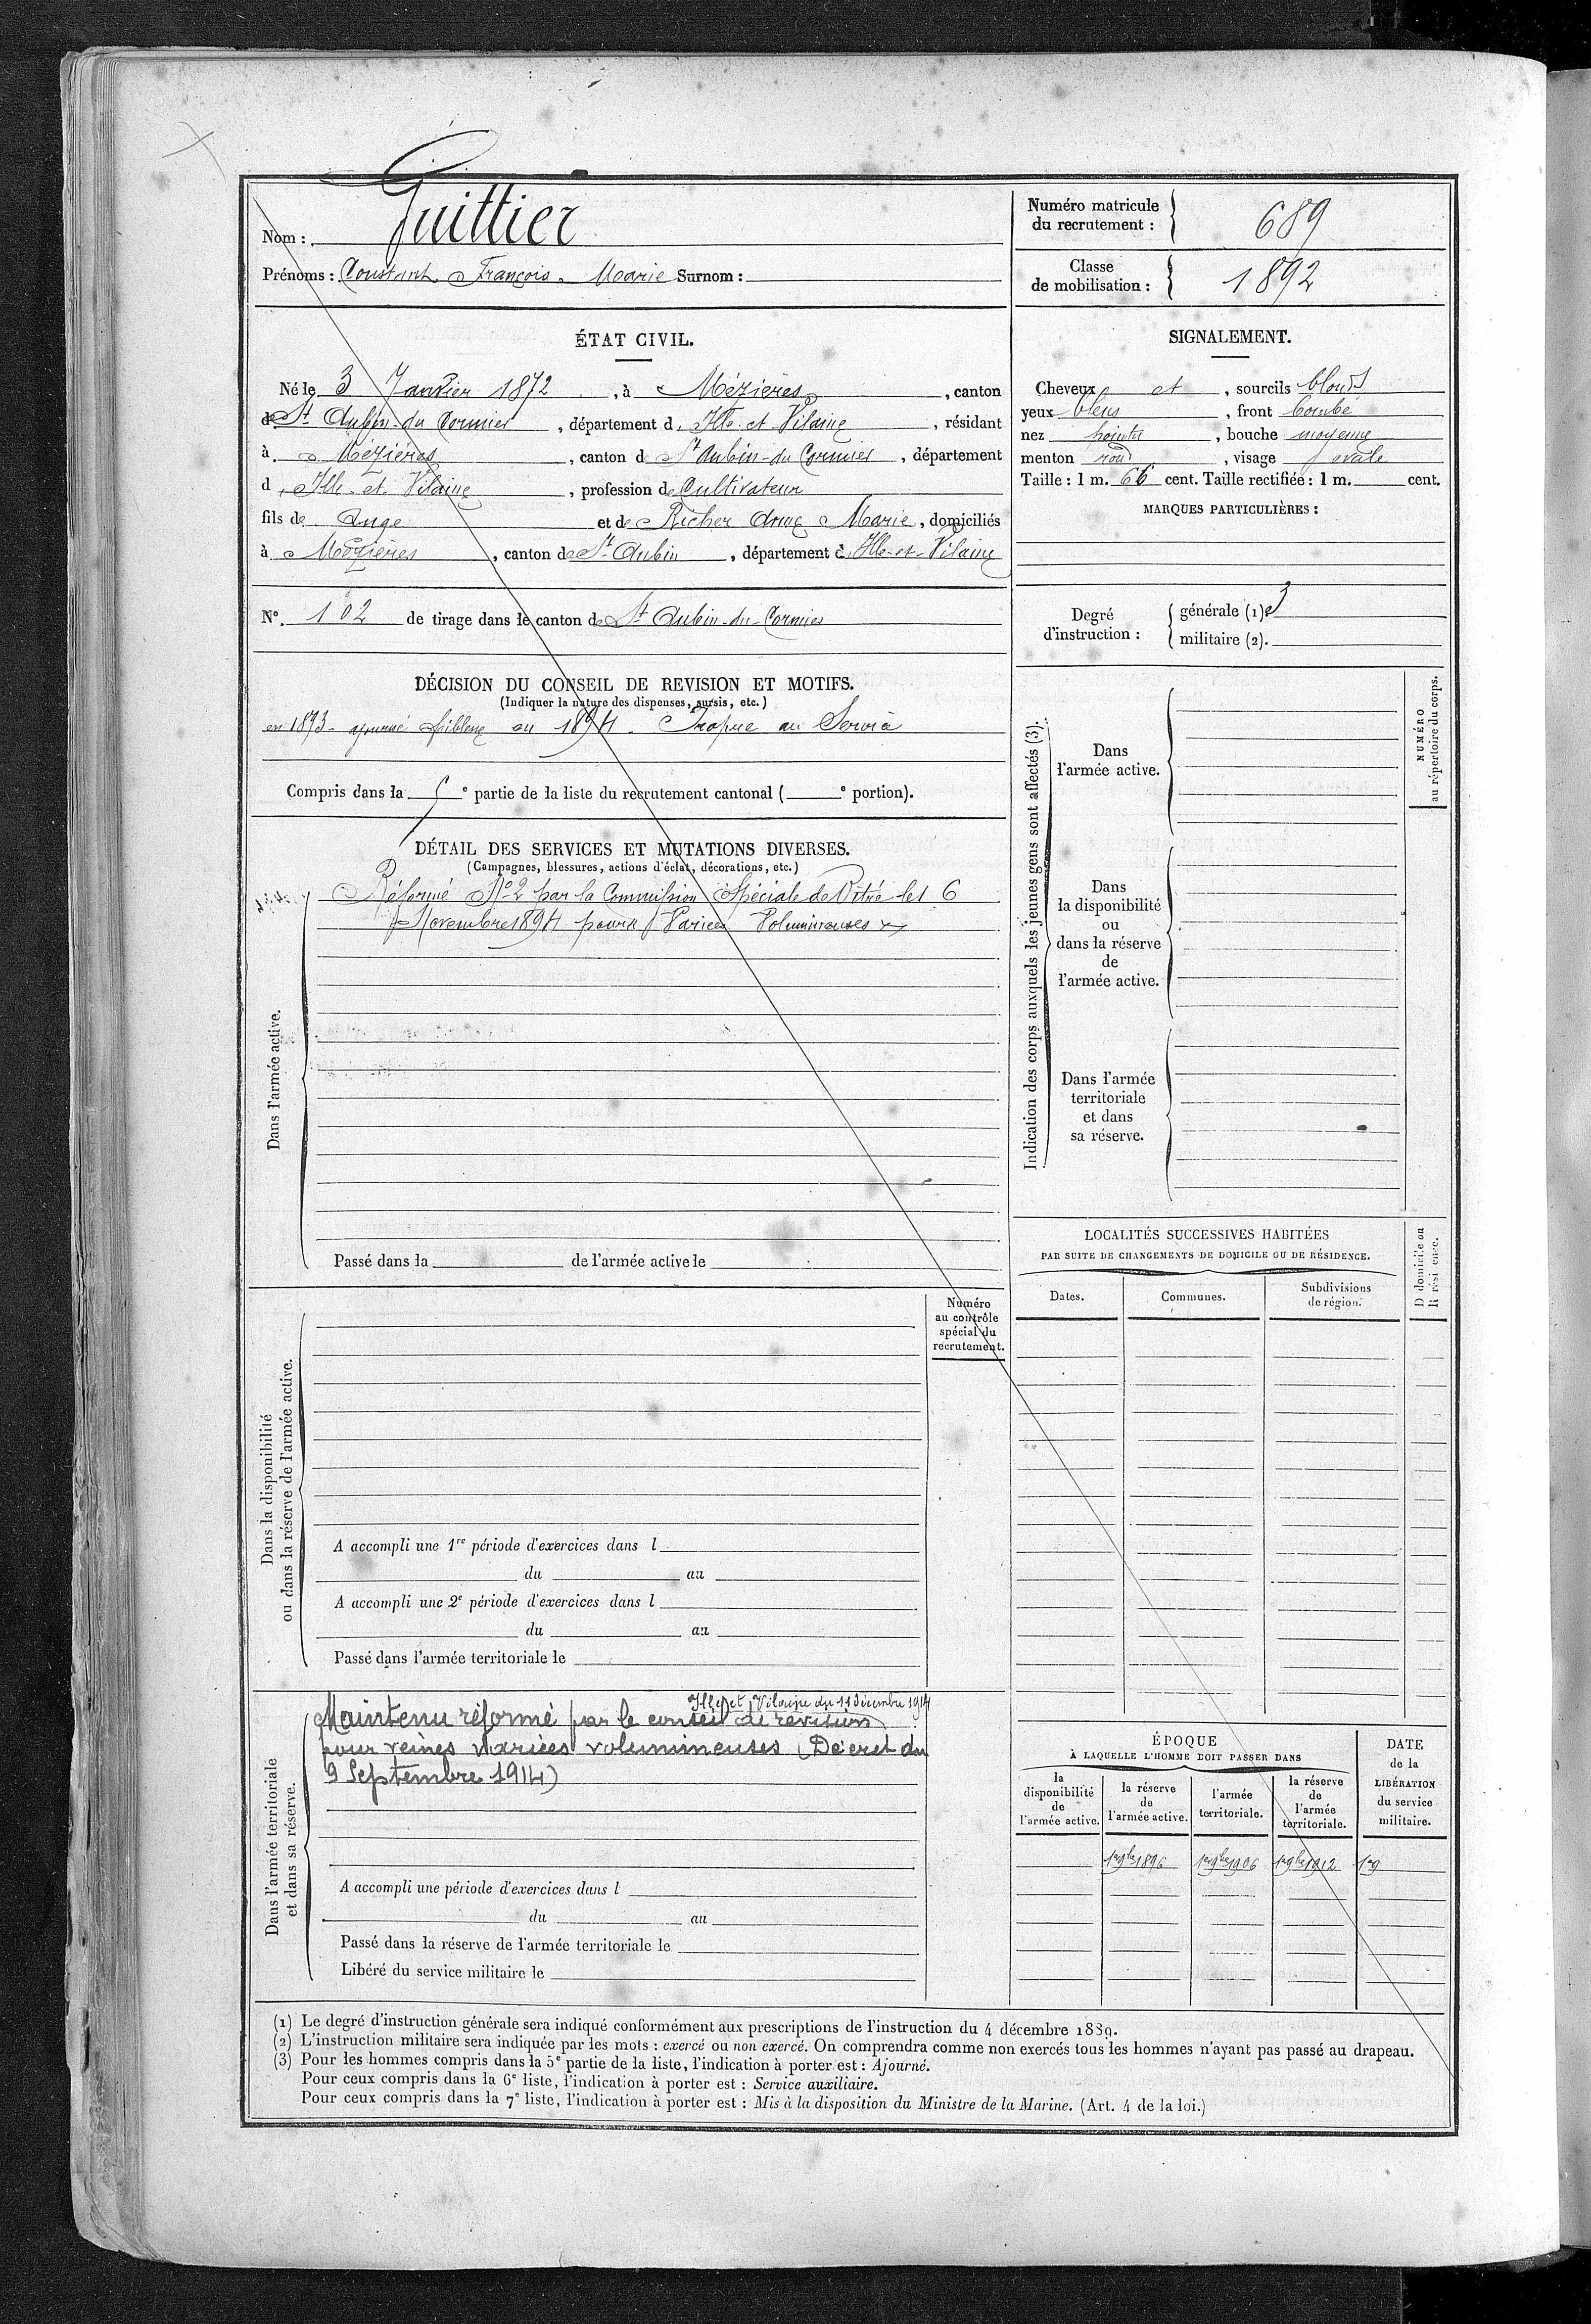 Nom : Guittier
Prénoms : Constant François Marie Surnom :
Numéro matricule
du recrutement : 689
Classe
de mobilisation : 1892
ÉTAT CIVIL.
Né le 3 Janvier 1872, à Mézières, canton
de St Aubin-du-Cormier, département d'Ille-et-Vilaine, résidant
à Mézières, canton de St Aubin-du-Cormier, département
d'Ille-et-Vilaine, profession de Cultivateur
fils de Ange et de Richer Anne Marie, domiciliés
à Mézières, canton de St Aubin, département d'Ille-et-Vilaine
N°. 102 de tirage dans le canton de St Aubin-du-Cormier
SIGNALEMENT.
Cheveux et, sourcils blonds
yeux bleus, front bombé
nez pointu, bouche moyenne
menton rond, visage ovale
Taille : 1 m. 66 cent. Taille rectifiée : 1 m. cent.
MARQUES PARTICULIÈRES :
Degré
d'instruction :
générale (1) 3
militaire (2).
DÉCISION DU CONSEIL DE REVISION ET MOTIFS.
(Indiquer la nature des dispenses, sursis, etc.)
en 1893 - ajourné faiblesse en 1894 - Propre au Service
Compris dans la e partie de la liste du recrutement cantonal ( e portion).
DÉTAIL DES SERVICES ET MUTATIONS DIVERSES.
(Campagnes, blessures, actions d'éclat, décorations, etc.)
Dans l'armée active.
Réformé N°2 par la Commission Spéciale de Vitré le 16
Novembre 1894 pour Varices Volumineuses
Passé dans la de l'armée active le
Indication des corps auxquels les jeunes gens sont affectés (3).
NUMÉRO
au répertoire du corps.
Dans
l'armée active.
Dans
la disponibilité
ou
dans la réserve
de
l'armée active.
Dans l'armée
territoriale
et dans
sa réserve.
LOCALITÉS SUCCESSIVES HABITÉES
PAR SUITE DE CHANGEMENTS DE DOMICILE OU DE RÉSIDENCE.
Dates.
Communes.
Subdivisions
de région.
D domicile ou
R résidence.
Dans la disponibilité
ou dans la réserve de l'armée active.
Numéro
au contrôle
spécial du
recrutement.
A accompli une 1re période d'exercices dans l
du au
A accompli une 2e période d'exercices dans l
du au
Passé dans l'armée territoriale le
Dans l'armée territoriale
et dans sa réserve.
Ille et Vilaine du 11 Décembre 1914
Maintenu réformé par le conseil de révision
pour veines variées volumineuses (Décret du
9 Septembre 1914)
A accompli une période d'exercices dans l
du au
Passé dans la réserve de l'armée territoriale le
Libéré du service militaire le
ÉPOQUE
À LAQUELLE L'HOMME DOIT PASSER DANS
la
disponibilité
de
l'armée active.
la réserve
de
l'armée active.
l'armée
territoriale.
la réserve
de
l'armée
territoriale.
DATE
de la
LIBÉRATION
du service
militaire.
1er 9bre 1896 1er 9bre 1906 1er 9bre 1912 1er 9
(1) Le degré d'instruction générale sera indiqué conformément aux prescriptions de l'instruction du 4 décembre 1889.
(2) L'instruction militaire sera indiquée par les mots : exercé ou non exercé. On comprendra comme non exercés tous les hommes n'ayant pas passé au drapeau.
(3) Pour les hommes compris dans la 5e partie de la liste, l'indication à porter est : Ajourné.
Pour ceux compris dans la 6e liste, l'indication à porter est : Service auxiliaire.
Pour ceux compris dans la 7e liste, l'indication à porter est : Mis à la disposition du Ministre de la Marine. (Art. 4 de la loi.)